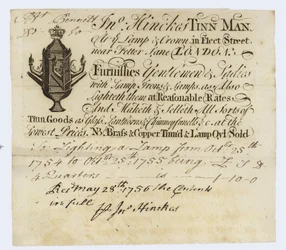 Bennett
Jno. Hinckes TINN MAN.
At ye Lamp & Crown in Fleet Street
near Fetter Lane LONDON.
Furnishes Gentlemen & Ladies
with Lamp Irons & Lamps, as also
Lighteth them at Reasonable Rates.
And Maketh & Selleth all sorts of
Tinn Goods as Glass Lanthorns & Chimneys &c. at the
Lowest Prices. NB. Brass & Copper Tinn'd & Lamp Oyl Sold
To Lighting a Lamp from Octr 25th
1754 to Octr 25th 1755 being £ S D
4 Quarters 1-10-0
Recd May 28th 1756 the Contents
in full
Jno Hinckes